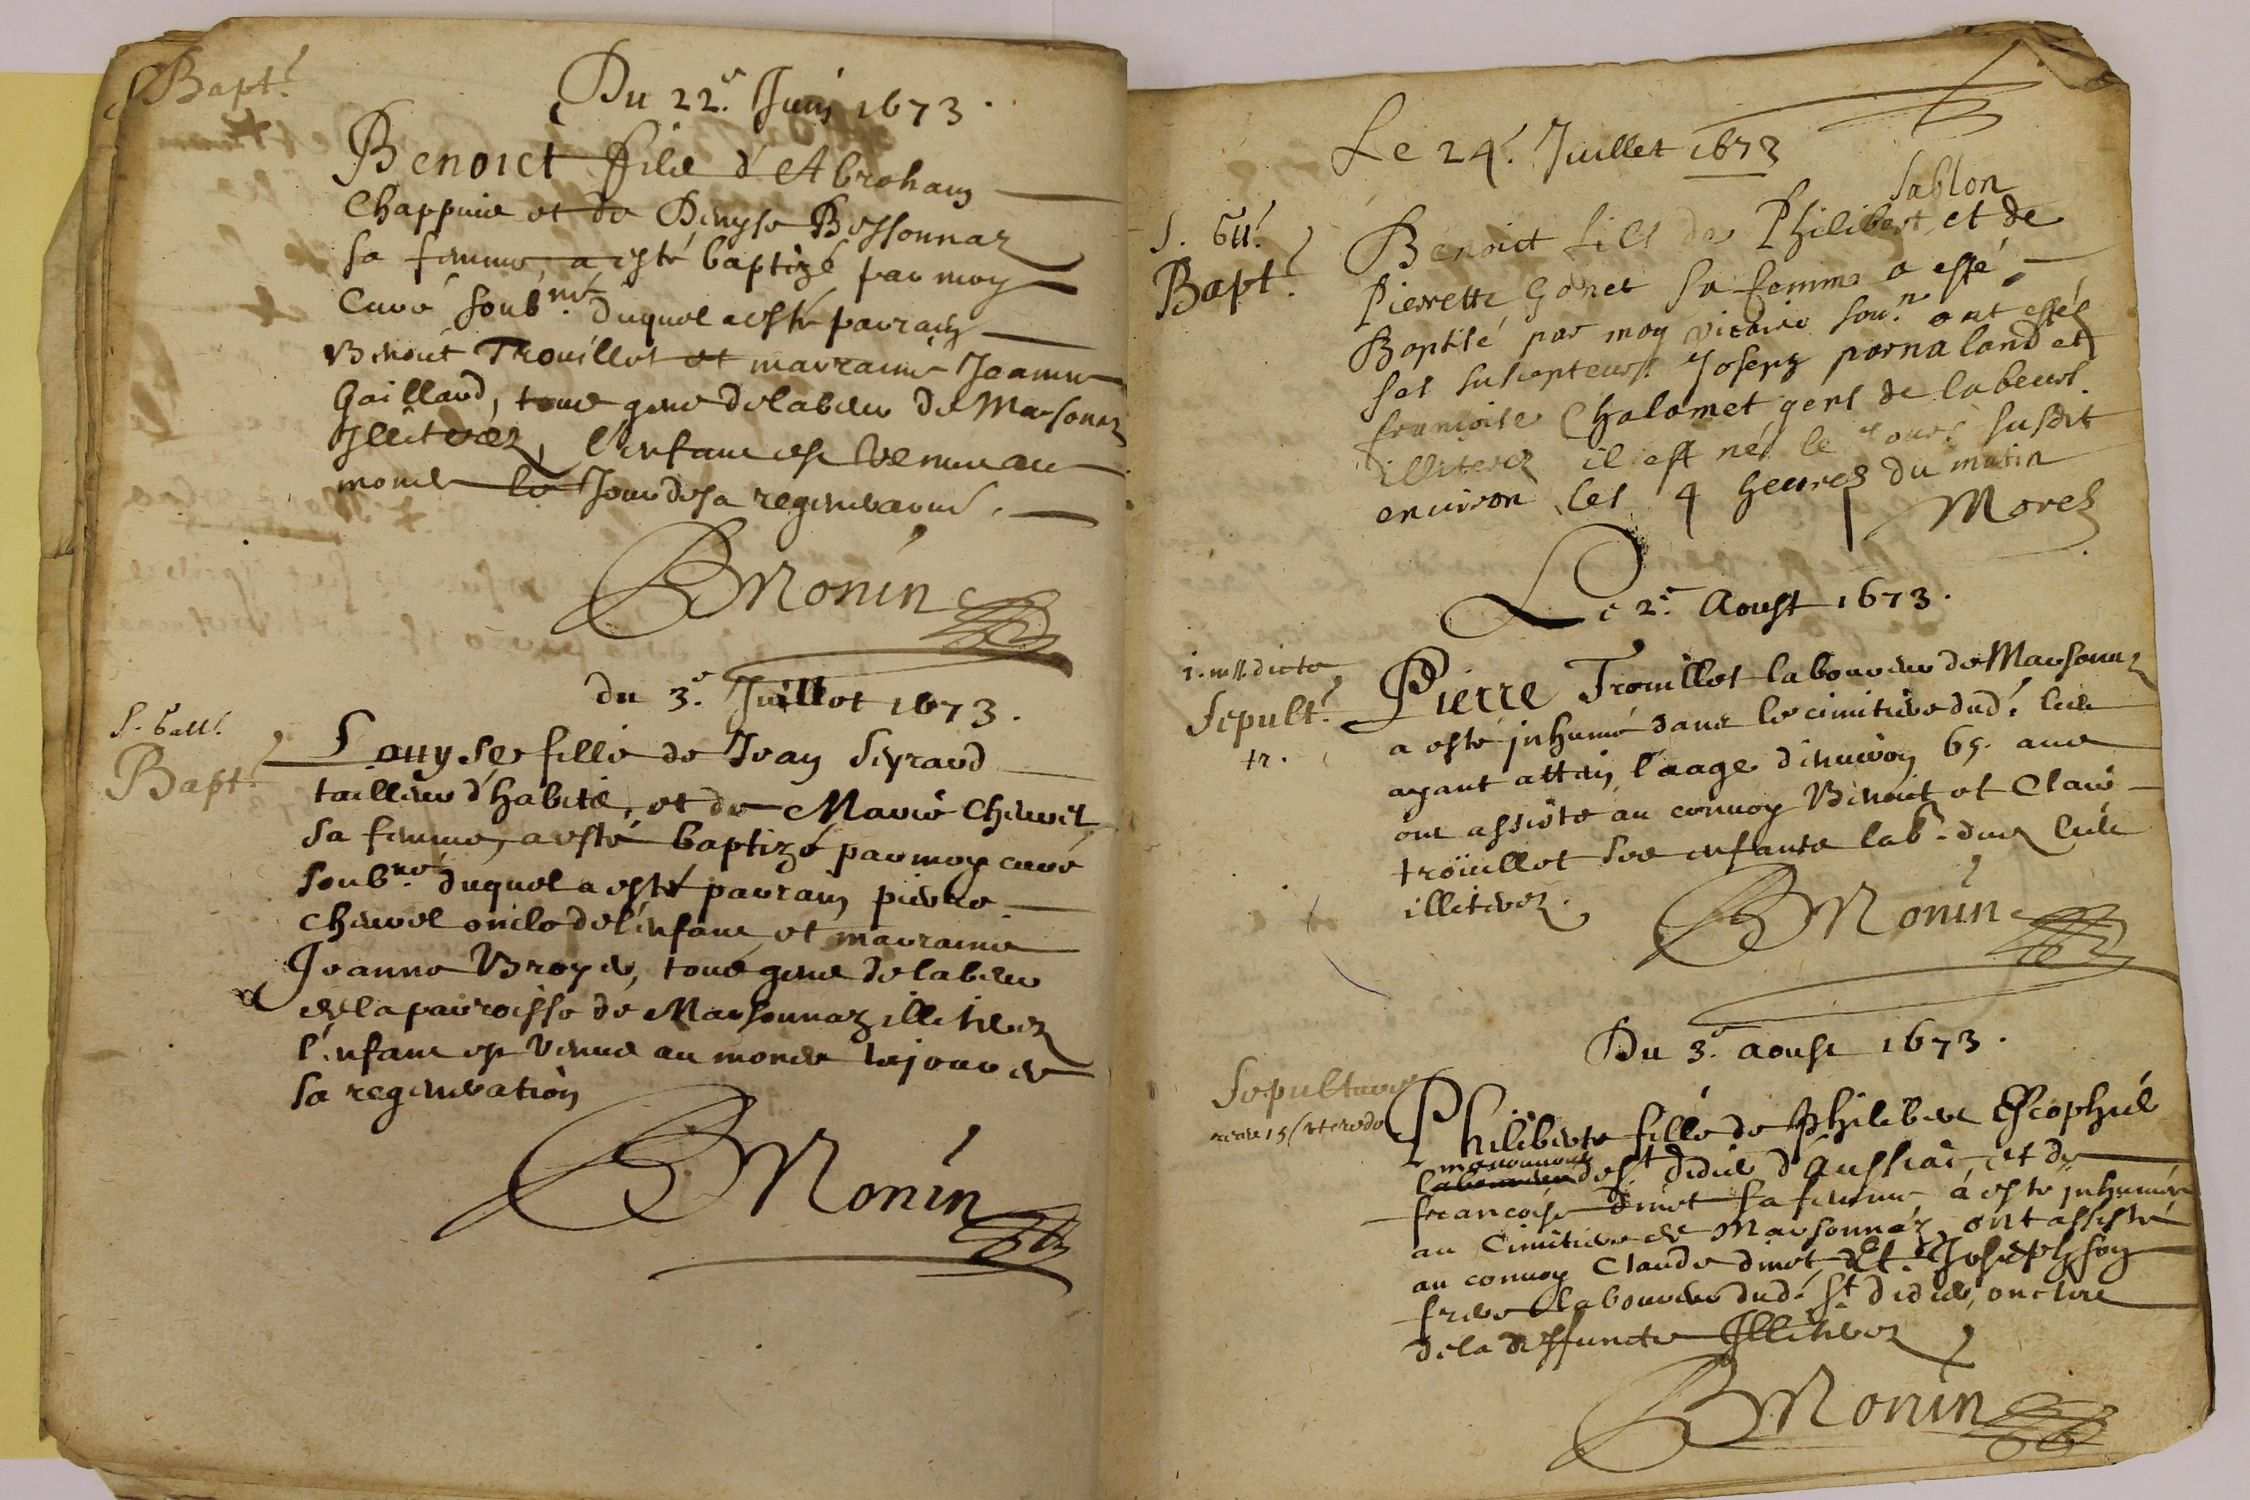 Bapt.
Du 22.e Juin 1673.
Benoict filz d'Abraham
Chappuis et de Denyse Bessonnaz
sa femme, a esté baptizé par moy
Curé soub.né duquel a esté parrain
Benoit Trouillot et marraine Jeanne
Gaillard, tous gens de labeur de Marsonaz
Jlliterez, l'enfant est venu au
monde le Jour de sa regeneration.
BMonin
du 3.e Juillet 1673.
Bapt.
Louyse fille de Jean Seyraud
tailleur d'habitz, et de Marie Chevrel
sa femme, a esté baptizé par moy curé
soub.né duquel a esté parrain pierre
chevrel oncle de l'enfant et marraine
Jeanne Broyer, tous gens de labeur
de la parroisse de Marsonnaz illiterez
l'enfant est venue au monde le jour de
sa regeneration
BMonin
Le 24. Juillet 1673
Sablon
Bapt.
Benoict fils de Philibert et de
Pierrette Gonet sa femme a esté
Baptisé par moy vicaire sou.né ont estés
ses suscepteurs Joseph parnaland et
françoise Chalamet gens de labeurs.
illiterez il est né le jour susdit
environ les 4 heures du matin
Morel
Le 2.e Aoust 1673.
Sepult.
Pierre Trouillot laboureur de Marsonnaz
a esté jnhumé dans le cimitiere dud. lieu
ayant attein l'aage d'environ 65. ans
ont assisté au convoy Benoit et Claude
trouillot ses enfants lab.r dud. lieu
illiterez.
BMonin
Du 3.e aoust 1673.
Sepulture
Philiberte fille de Philibert Escophié
manouvrier
laboureur de St didier d'Aussiat, et de
françoise dinot sa femme a esté jnhumée
au Cimitiere de Marsonnaz, ont assisté
au convoy Claude dinot Et Joseph son
frere laboureurs dud. St didier, oncles
de la deffuncte Jlliterez
BMonin